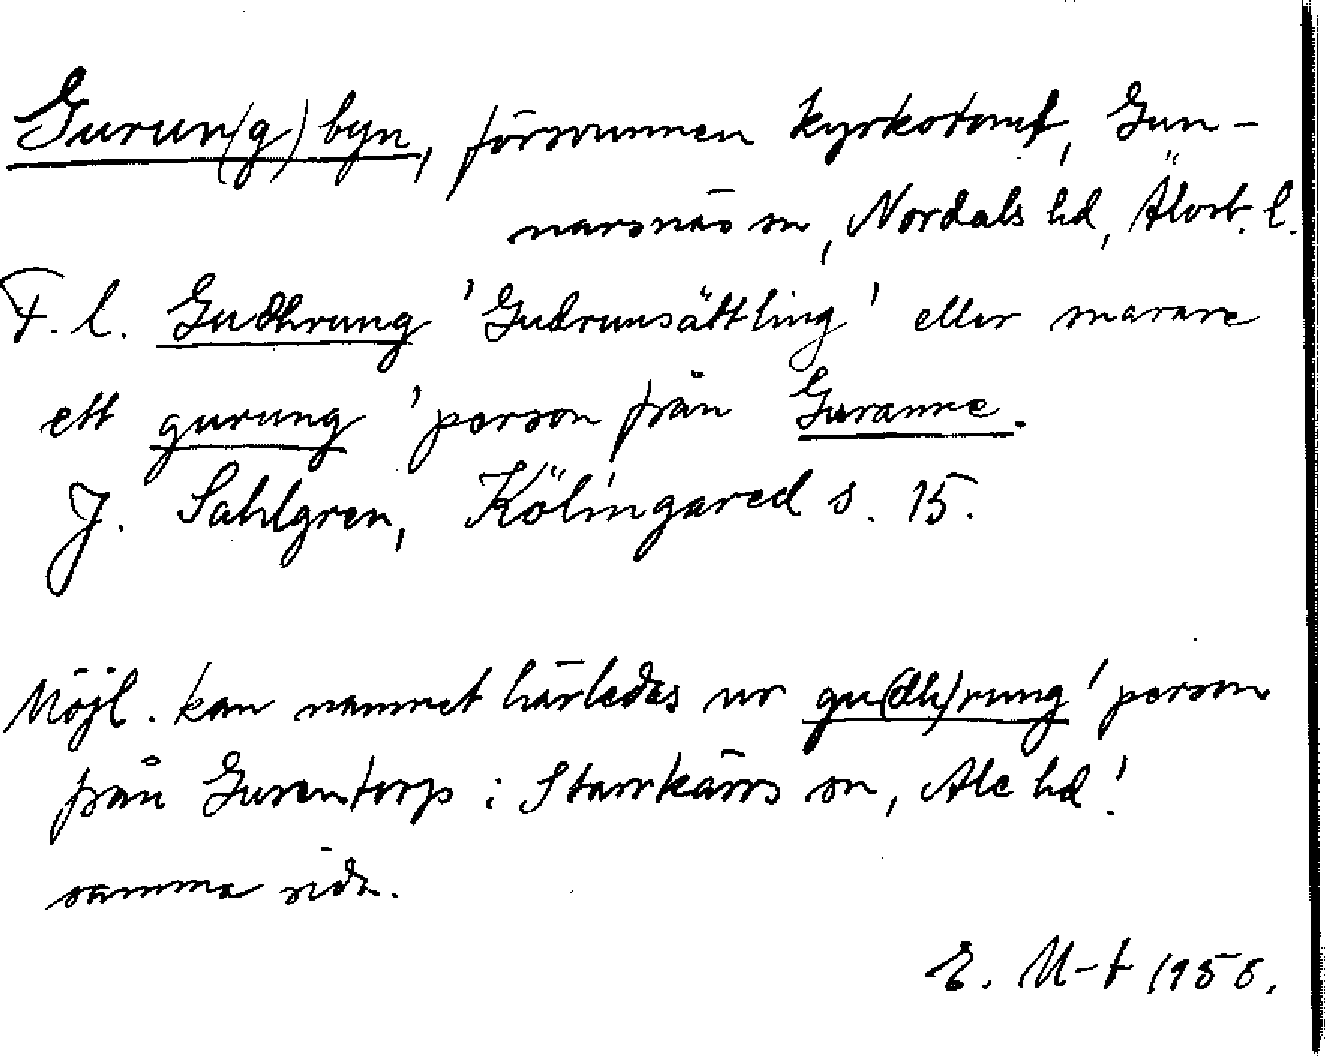 Gurun(g)byn, försvunnen kyrkotomt, Gun-
narsnäs sn, Nordals hd, Älvsb. l.
F. l. Gudhrung 'Gudrunsättling' eller snarare
ett gurung 'person från Guranne.
J. Sahlgren, Kölingared s. 15.
Möjl. kan namnet härledas ur gu(dh)rung 'person
från Gurentorp i Starrkärrs sn, Ale hd!
samma sida.
E. M-t 1956.